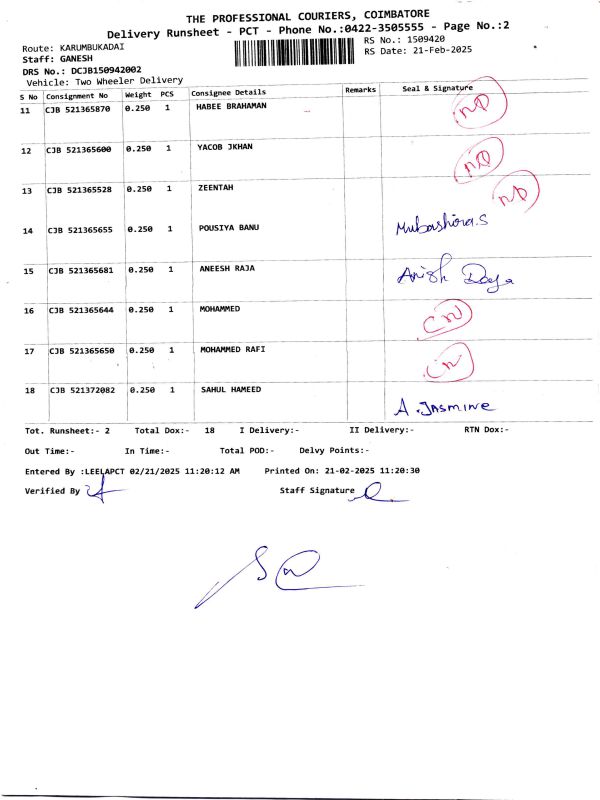 THE PROFESSIONAL COURIERS, COIMBATORE
Delivery Runsheet - PCT - Phone No.:0422-3505555 - Page No.:2
Route: KARUMBUKADAI
RS No.: 1509420
Staff: GANESH
RS Date: 21-Feb-2025
DRS No.: DCJB150942002
Vehicle: Two Wheeler Delivery
S No Consignment No Weight PCS Consignee Details Remarks Seal & Signature
11 CJB 521365870 0.250 1 HABEE BRAHAMAN ND
12 CJB 521365600 0.250 1 YACOB JKHAN ND
13 CJB 521365528 0.250 1 ZEENTAH ND
14 CJB 521365655 0.250 1 POUSIYA BANU Mubashira.S
15 CJB 521365681 0.250 1 ANEESH RAJA Anish Raja
16 CJB 521365644 0.250 1 MOHAMMED
17 CJB 521365650 0.250 1 MOHAMMED RAFI
18 CJB 521372082 0.250 1 SAHUL HAMEED A.JASMINE
Tot. Runsheet:- 2 Total Dox:- 18 I Delivery:- II Delivery:- RTN Dox:-
Out Time:- In Time:- Total POD:- Delvy Points:-
Entered By :LEELAPCT 02/21/2025 11:20:12 AM Printed On: 21-02-2025 11:20:30
Verified By Staff Signature